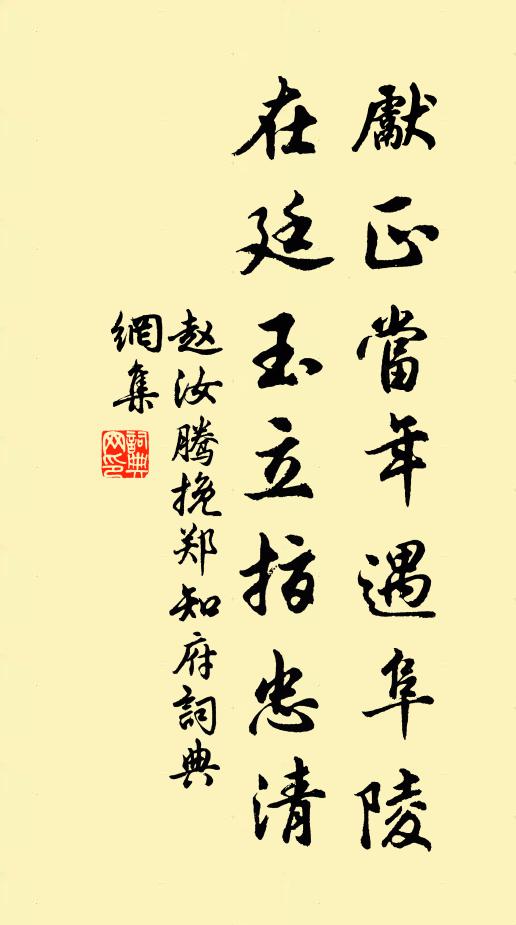 獻正當年遇阜陵
在廷玉立指忠清
赵汝騰挽郑知府詞典
網集
詞典網印